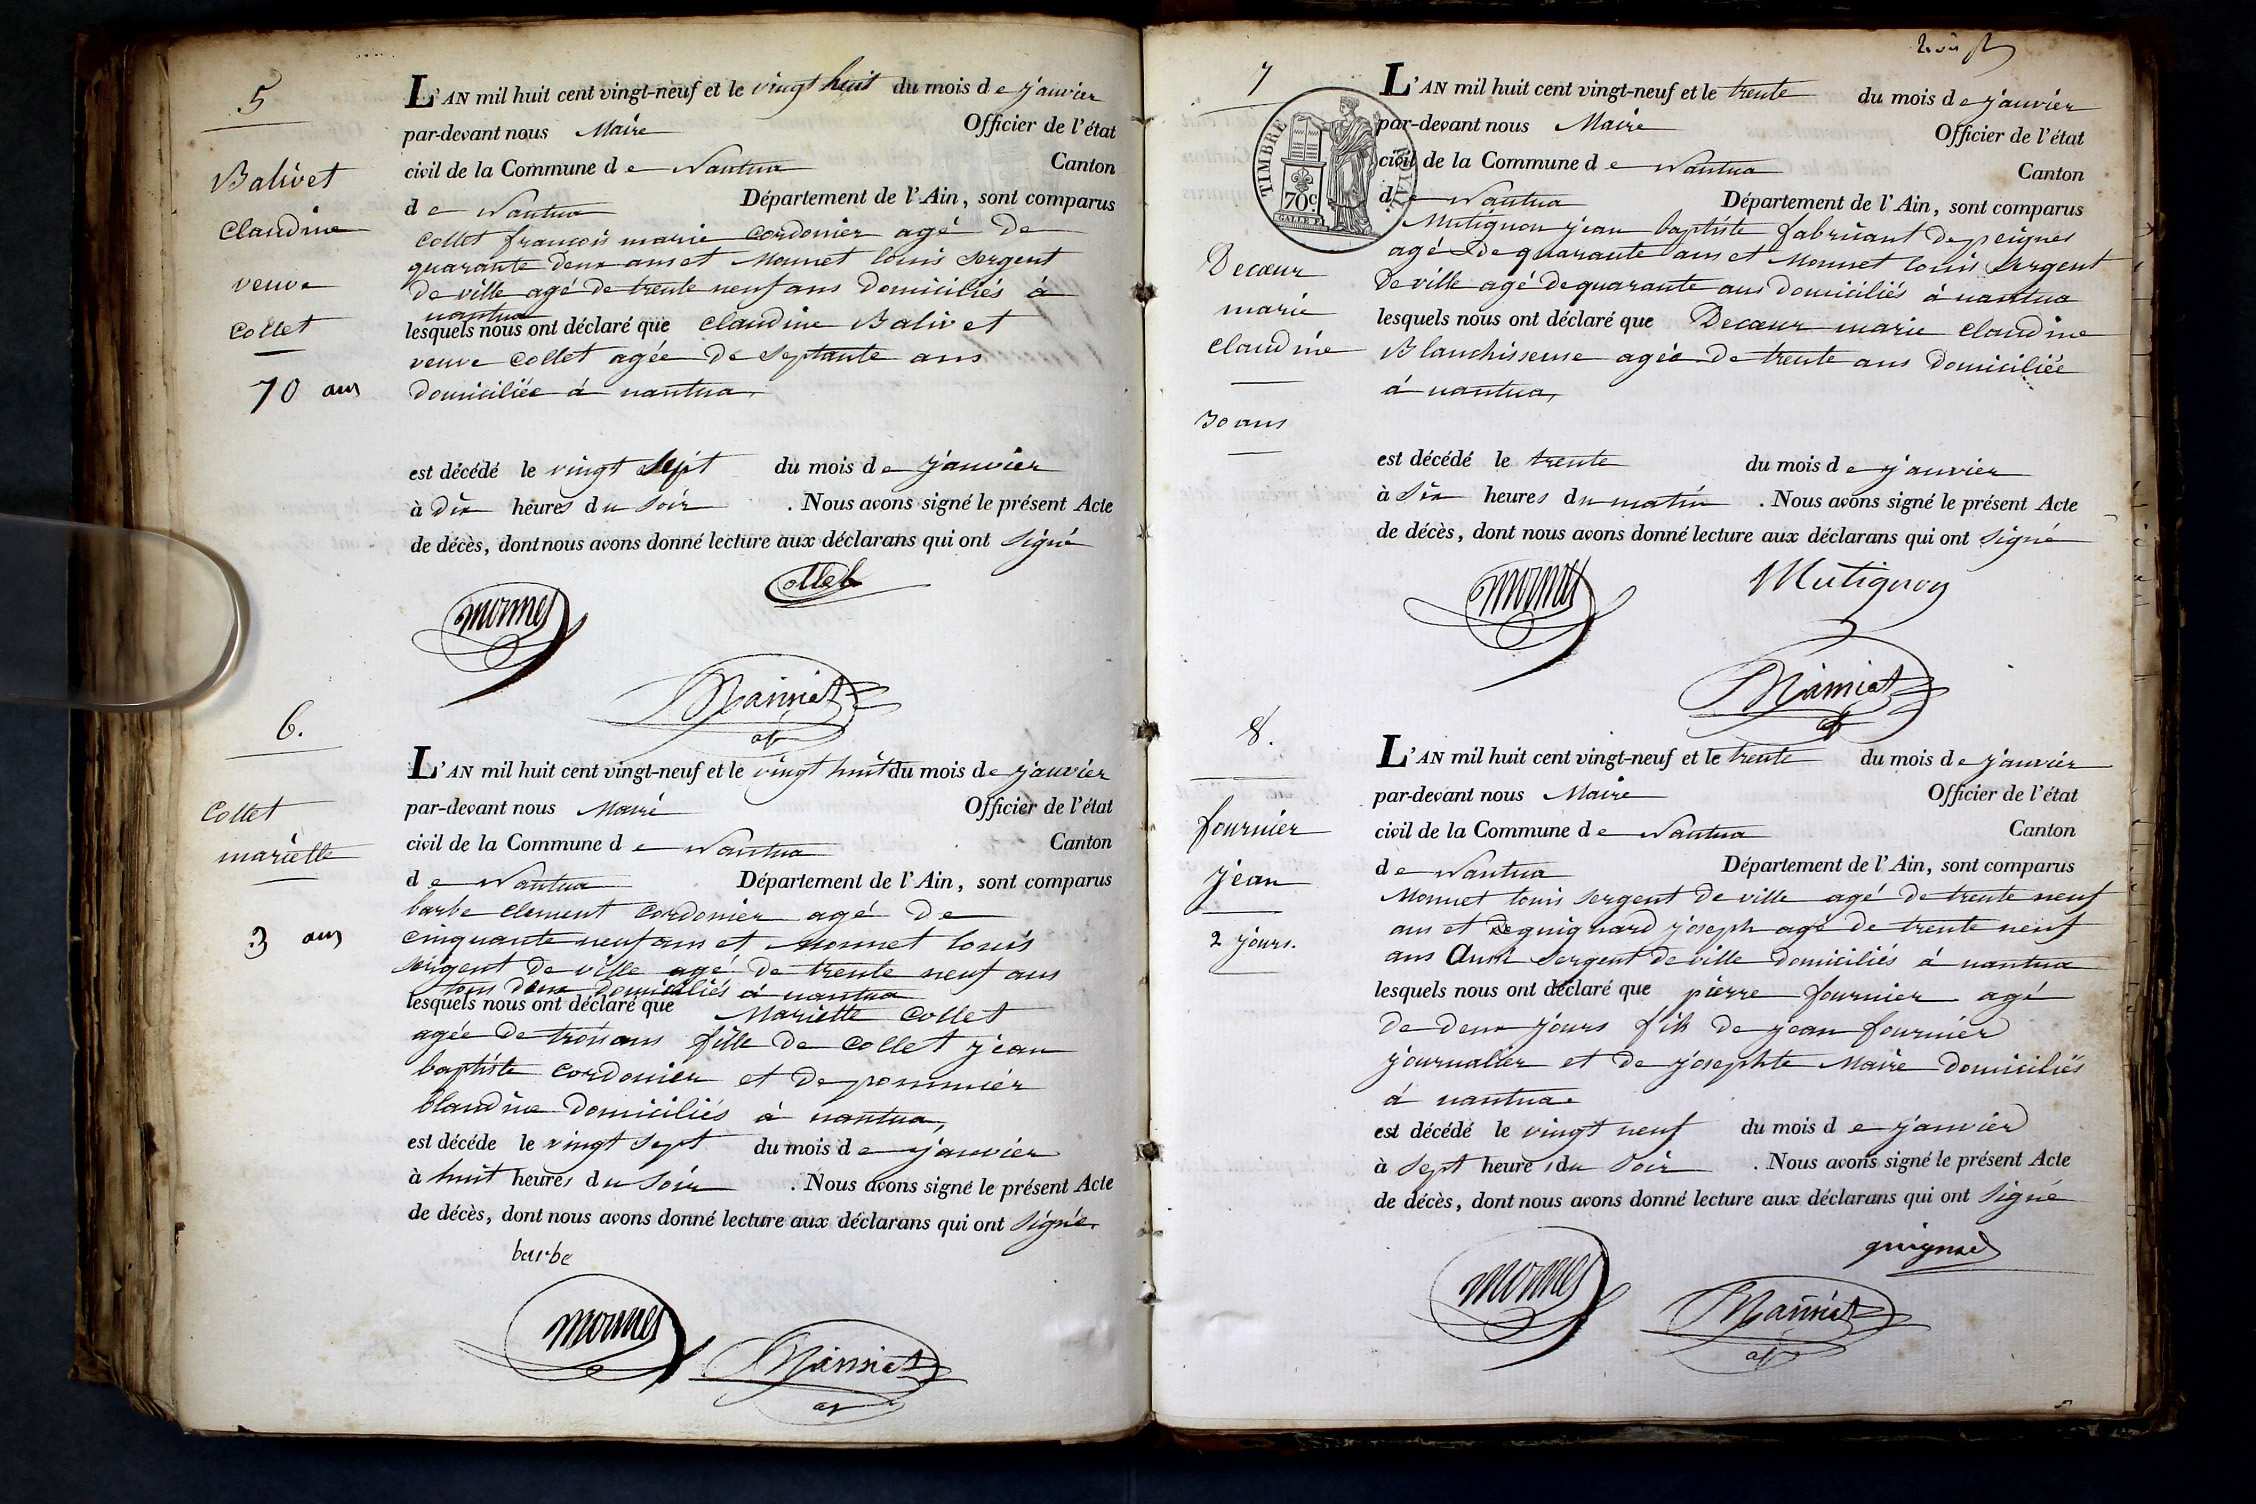 5
Balivet
claudine
veuve
collet
70 ans
L'AN mil huit cent vingt-neuf et le vingt huit du mois de janvier
par-devant nous Maire Officier de l'état
civil de la Commune de Nantua Canton
de Nantua Département de l'Ain, sont comparus
collet françois marie cordonier agé de
quarante deux ans et Monnet louis sergent
de ville agé de trente neuf ans domiciliés à
nantua
lesquels nous ont déclaré que claudine Balivet
veuve collet agée de septante ans
domiciliée à nantua,
est décédé le vingt sept du mois de janvier
à dix heures du soir . Nous avons signé le présent Acte
de décès, dont nous avons donné lecture aux déclarans qui ont signé
Collet
monnet
6.
Collet
mariette
3 ans
L'AN mil huit cent vingt-neuf et le vingt huit du mois de janvier
par-devant nous Maire Officier de l'état
civil de la Commune de Nantua Canton
de Nantua Département de l'Ain, sont comparus
barbe clement cordonier agé de
cinquante neuf ans et monnet louis
sergent de ville agé de trente neuf ans
tous deux domiciliés à nantua
lesquels nous ont déclaré que Mariette collet
agée de trois ans fille de collet jean
baptiste cordonier et de pommier
blandine domiciliés à nantua,
est décéde le vingt sept du mois de janvier
à huit heures du soir . Nous avons signé le présent Acte
de décès, dont nous avons donné lecture aux déclarans qui ont signé.
barbe
monnet
7
Decœur
marie
claudine
30 ans
TIMBRE ROYAL
70c
L'AN mil huit cent vingt-neuf et le trente du mois de janvier
par-devant nous Maire Officier de l'état
civil de la Commune de Nantua Canton
de Nantua Département de l'Ain, sont comparus
Mutignon jean baptiste fabricant de peignes
agé de quarante ans et Monnet louis sergent
de ville agé de quarante ans domiciliés à nantua
lesquels nous ont déclaré que Decœur marie claudine
Blanchisseuse agée de trente ans domiciliée
à nantua,
est décédé le trente du mois de janvier
à six heures du matin . Nous avons signé le présent Acte
de décès, dont nous avons donné lecture aux déclarans qui ont signé
Mutignon
monnet
8.
fournier
jean
2 jours.
L'AN mil huit cent vingt-neuf et le trente du mois de janvier
par-devant nous Maire Officier de l'état
civil de la Commune de Nantua Canton
de Nantua Département de l'Ain, sont comparus
Monnet louis sergent de ville agé de trente neuf
ans et de guignard joseph agé de trente neuf
ans aussi sergent de ville domiciliés à nantua
lesquels nous ont déclaré que pierre fournier agé
de deux jours fils de jean fournier
journalier et de josephte Maire domiciliés
à nantua.
est décédé le vingt neuf du mois de janvier
à sept heures du soir . Nous avons signé le présent Acte
de décès, dont nous avons donné lecture aux déclarans qui ont signé
monnet